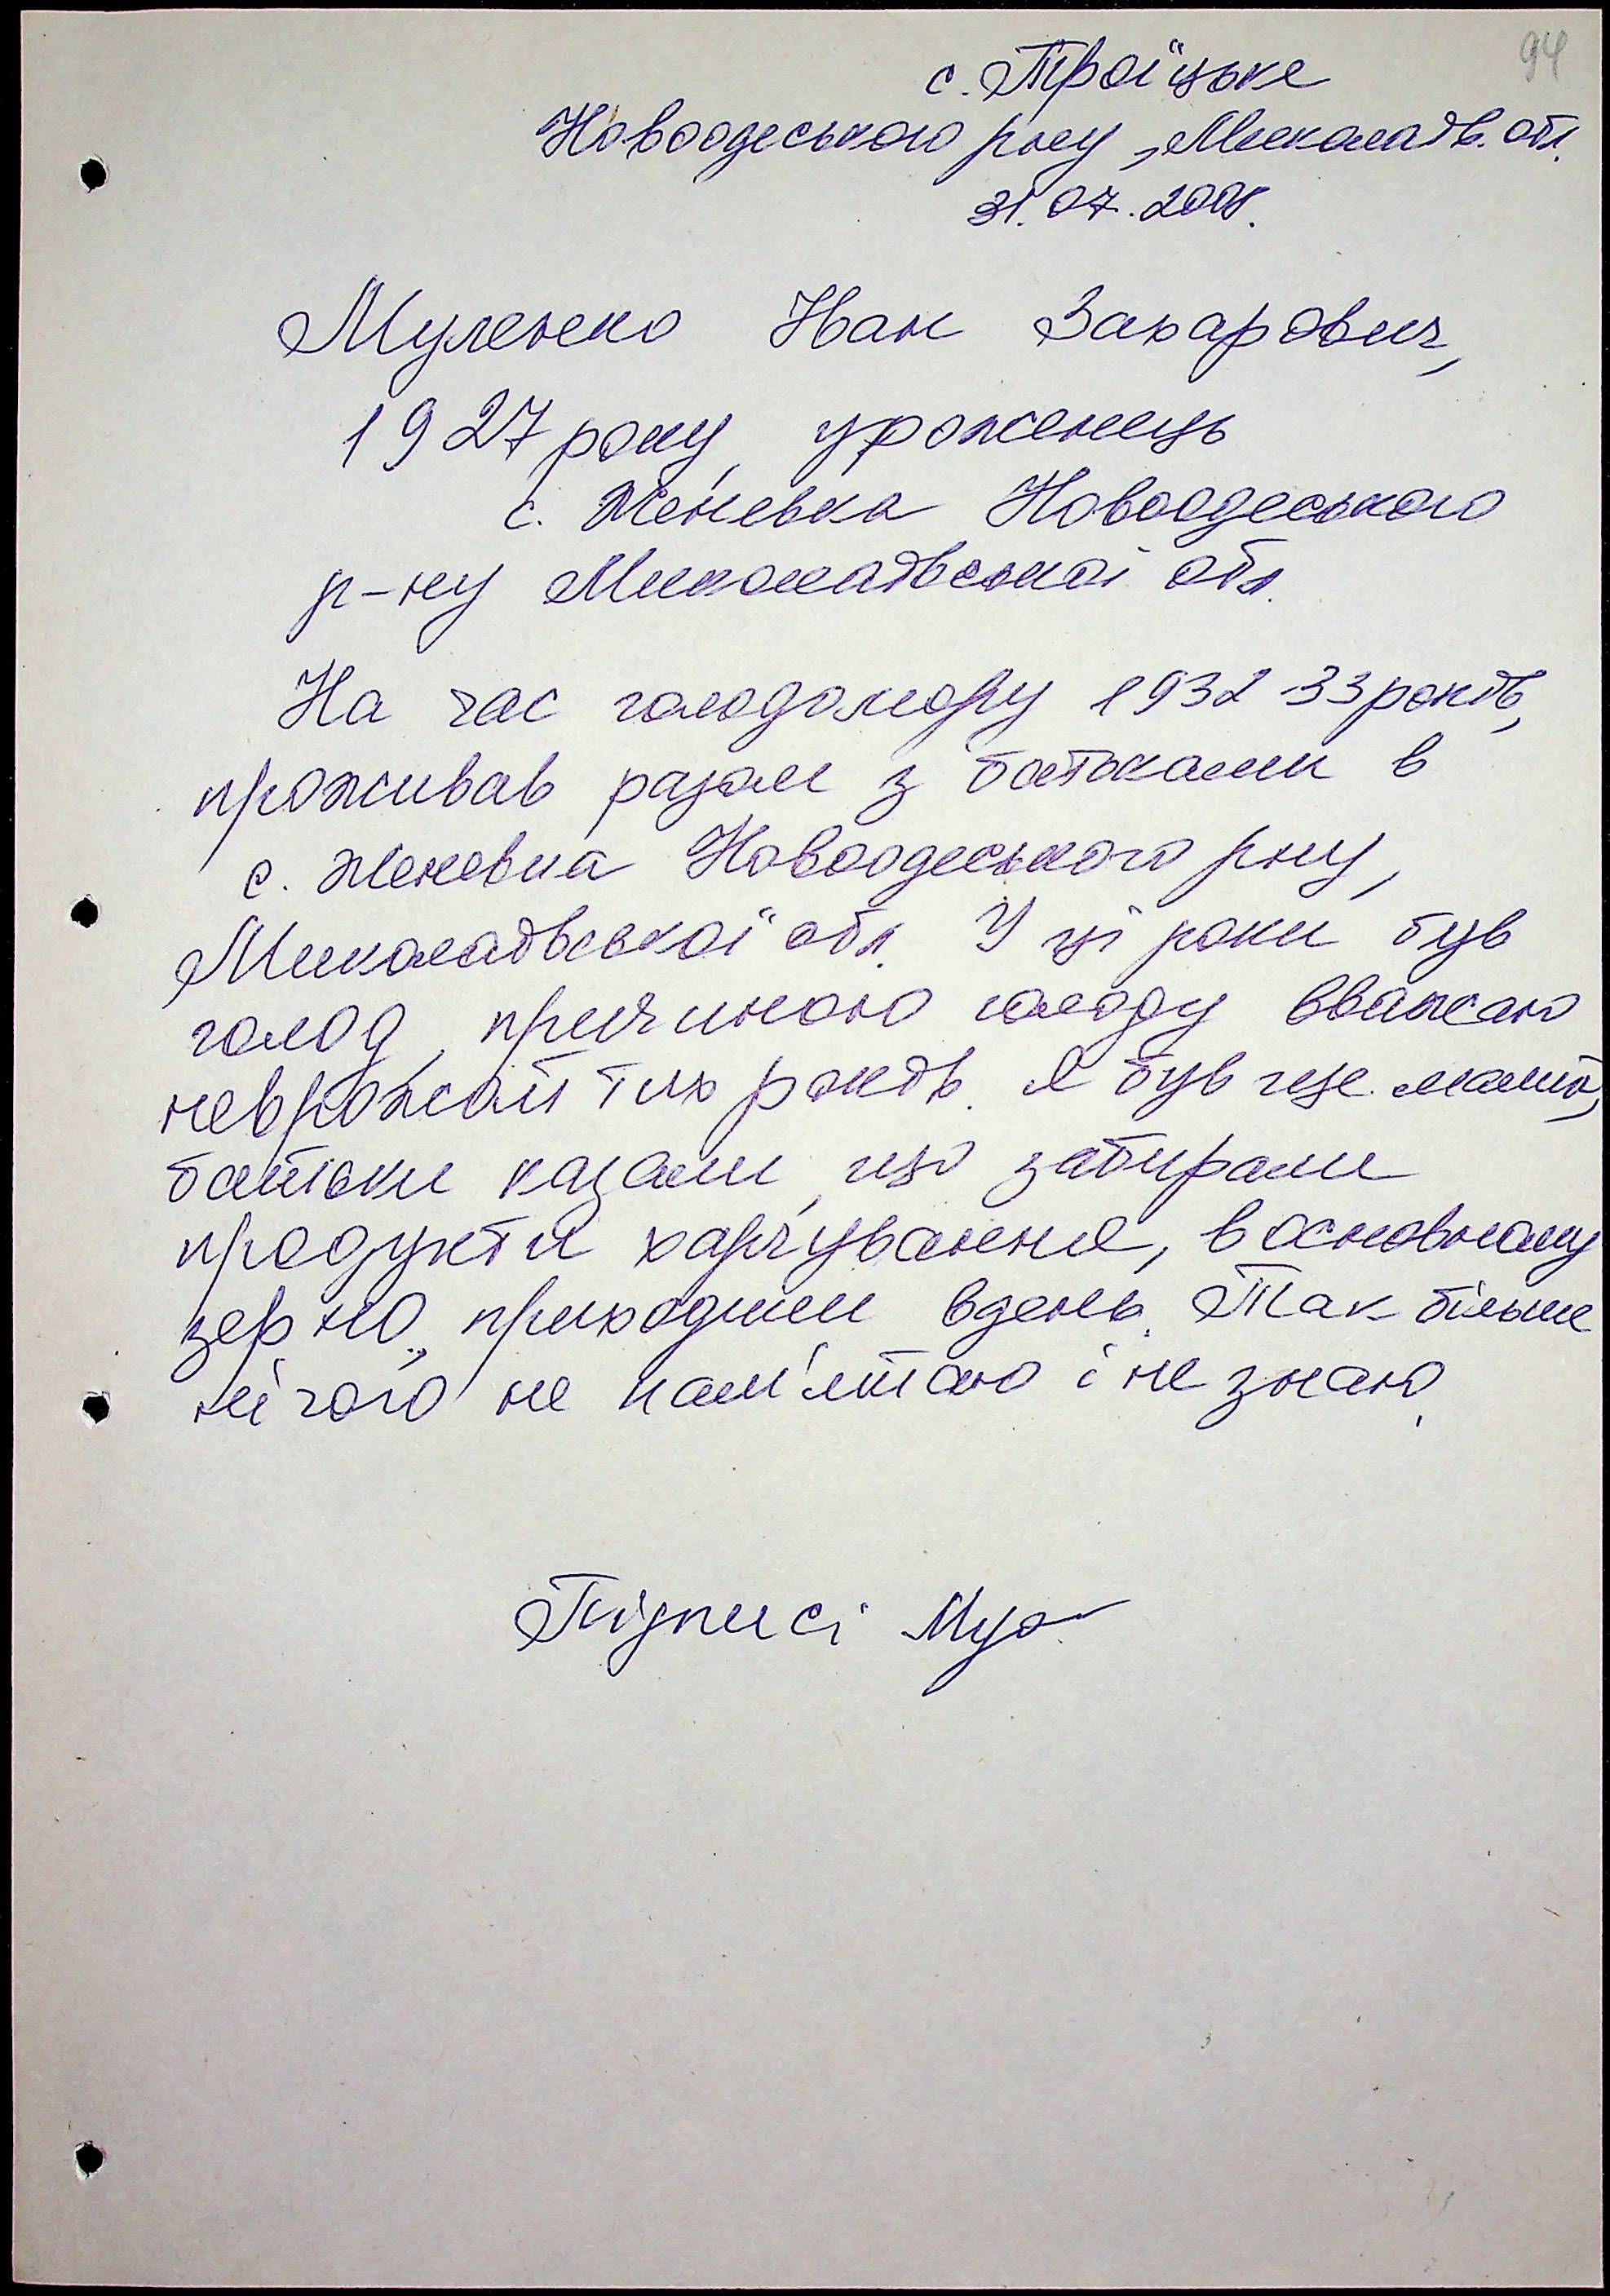 94
с. Троїцьке
Новоодеського рну, Миколаїв. обл.
31.07.2008.
Муленко Іван Захарович,
1927 року, уроженець
с. Женевка Новоодеського
р-ну Миколаївської обл.
На час голодомору 1932-33 років,
проживав разом з батьками в
с. Женевка Новоодеського рну,
Миколаївської обл. У ці роки був
голод, причиною голоду вважаю
неврожай тих років. Я був ще малий,
батьки казали, що забирали
продукти харчування, в основному
зерно, приходили вдень. Так більше
нічого не пам'ятаю і не знаю.
Підписі